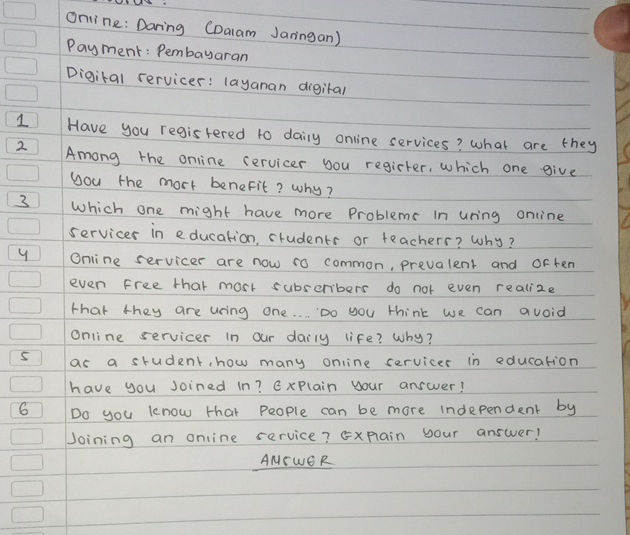 Online: Daring (Dalam Jaringan)
Payment: Pembayaran
Digital services: layanan digital
1 Have you registered to daily online services? what are they
2 Among the online services you register, which one give
you the most benefit? why?
3 which one might have more Problems in using online
services in education, students or teachers? Why?
4 Online services are now so common, prevalent and often
even free that most subscribers do not even realize
that they are using one.... Do you think we can avoid
Online services in our daily life? why?
5 as a student, how many online services in education
have you Joined in? Explain your answer!
6 Do you know that People can be more independent by
Joining an online service? Explain your answer!
ANSWER